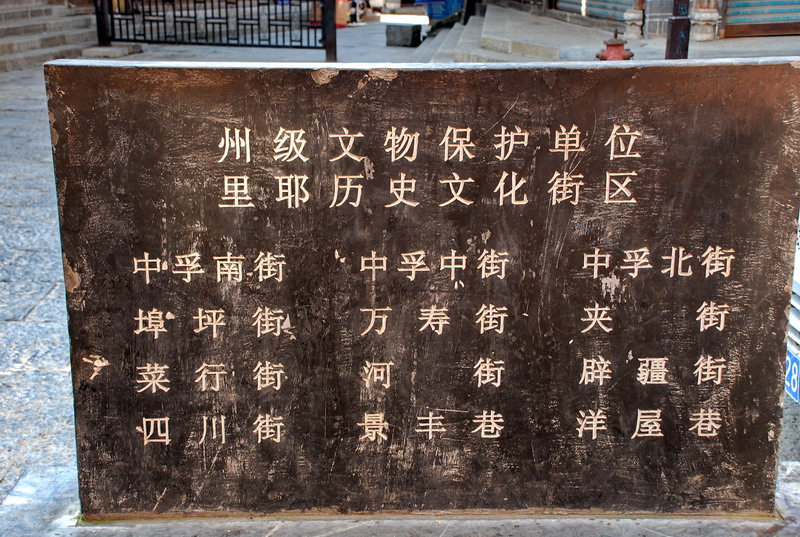 州级文物保护单位
里耶历史文化街区
中孚南街 中孚中街 中孚北街
埠坪街 万寿街 夹街
菜行街 河街 辟疆街
四川街 景丰巷 洋屋巷
28